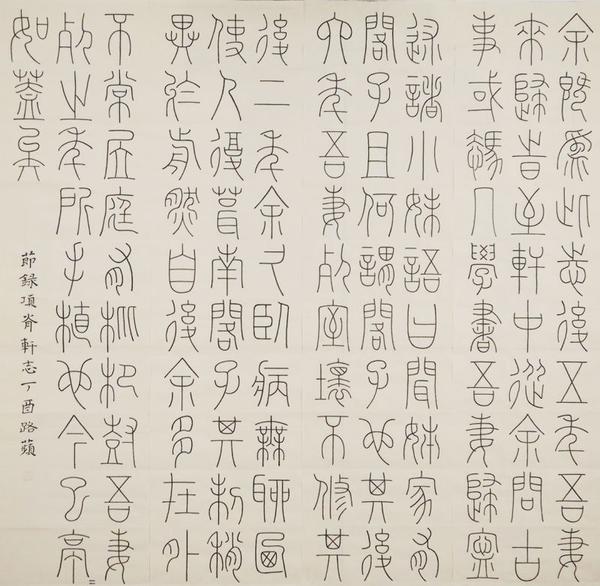 余既為此志後五年吾妻
來歸旹至軒中從余問古
事或憑几學書吾妻歸寧
述諸小妹語曰聞姊家有
閣子且何謂閣子也其後
六年吾妻死室壞不修其
後二年余久臥病無聊卥
使人復葺南閣子其制稍
異於前然自後余多在外
不常居庭有枇杷樹吾妻
死之年所手植也今已亭=
如蓋矣
節錄項脊軒志丁酉路蘋